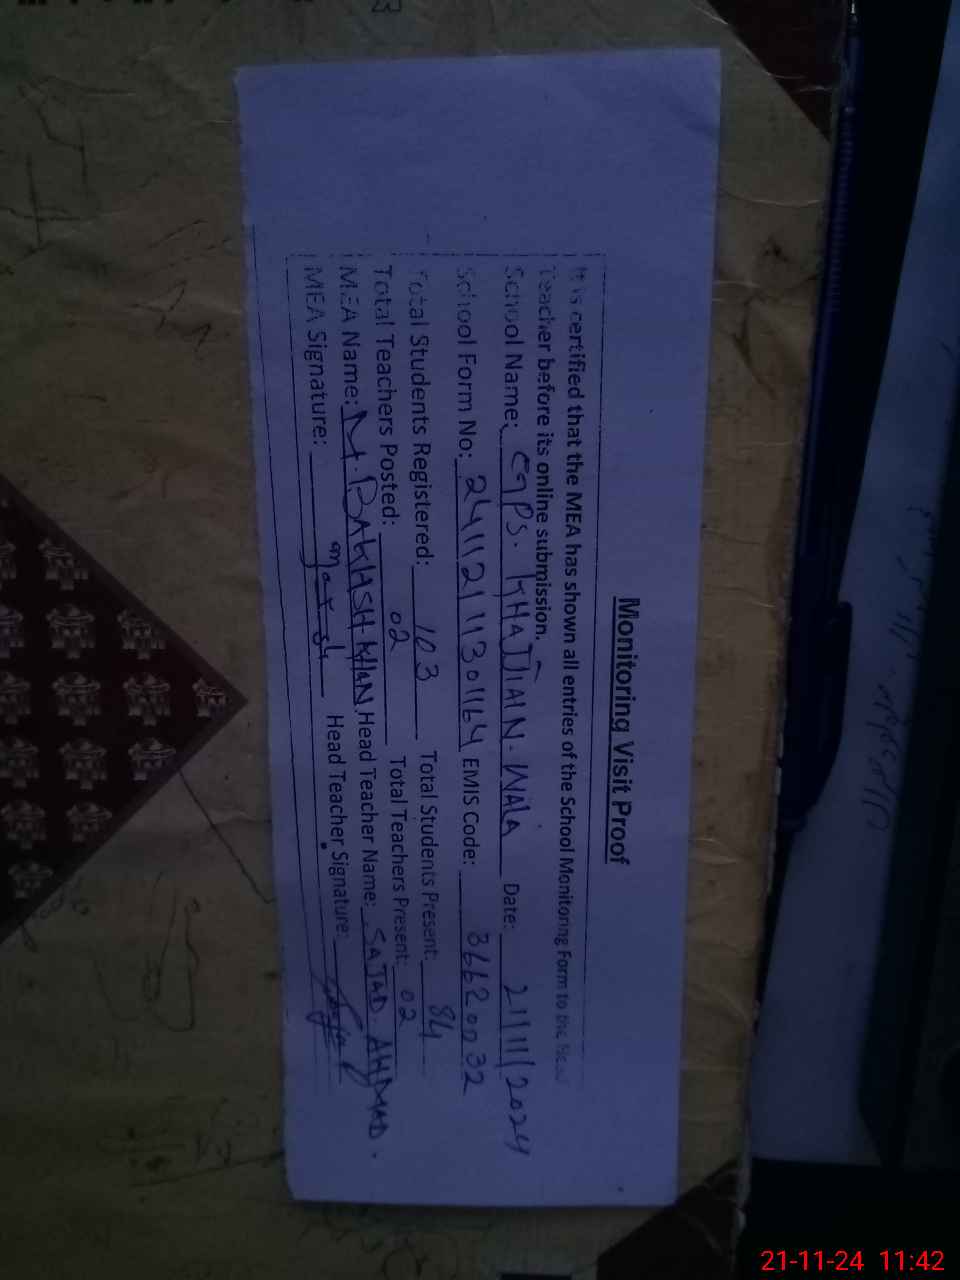 Monitoring Visit Proof
It is certified that the MEA has shown all entries of the School Monitoring Form to the Head
Teacher before its online submission.
School Name: GPS. KHATJIAIN. WALA Date: 21/11/2024
School Form No: 24112111301164 EMIS Code: 36620032
Total Students Registered: 103 Total Students Present: 84
Total Teachers Posted: 02 Total Teachers Present: 02
MEA Name: M. BAKHSH KHAN Head Teacher Name: SAJAD. AHMAD.
MEA Signature: Head Teacher Signature:
21-11-24 11:42